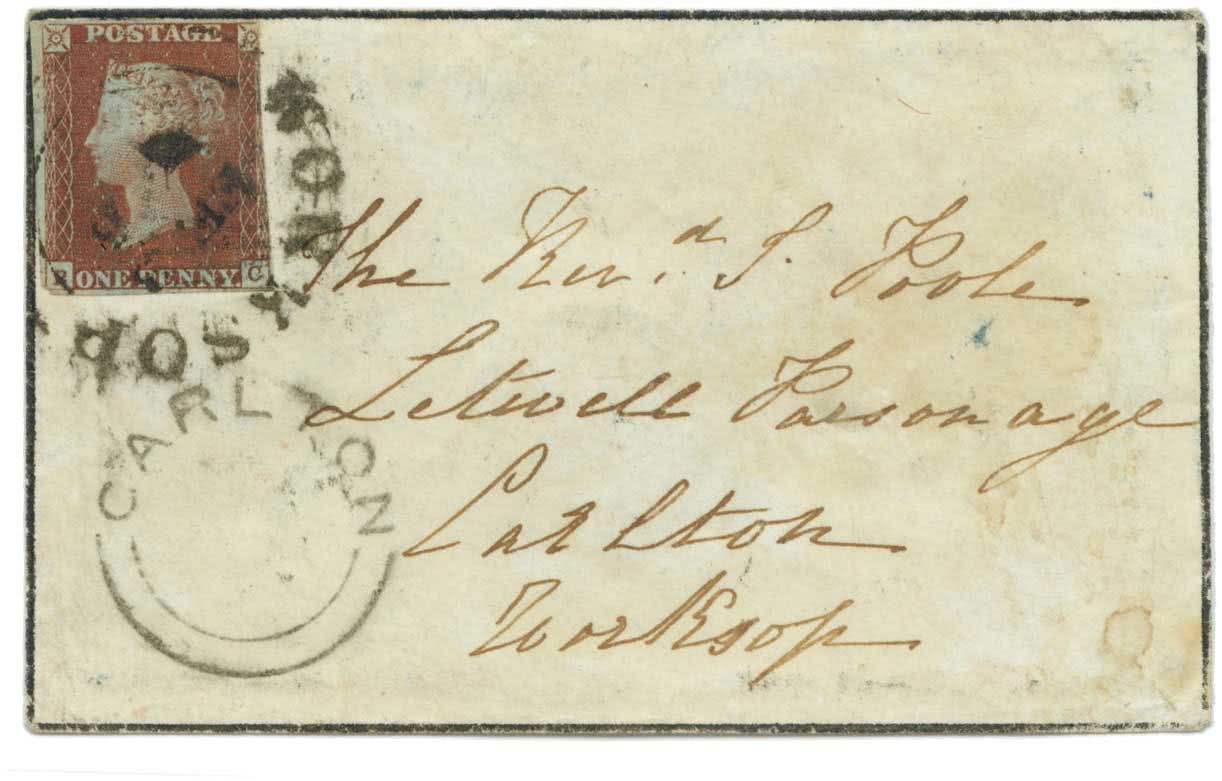 POSTAGE
ONE PENNY.
C
CARLTON
The Rev.d S. Poole
Letwell Parsonage
Carlton
Worksop